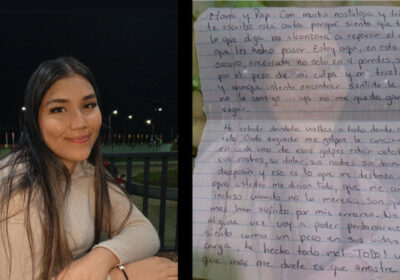 Mami y Pap. Con mucha nostalgia y
te escribo esta carta porque siento que
lo que diga no alcanzara a reparar el
que les hecho pasar. Estoy aqui, en este
oscuro, encerrada no solo en 4 paredes, s
por el peso de mi culpa y mi
y aunque intento encontrar sentido
no lo consigo... ya no me queda
seguir.
He estado dandole vueltas a todo desde
esto. Cada segundo me golpea la concien
en cada uno de esos golpes están
sus rostros, su dolor, sus noches sin
desespon y eso es lo que me destroza
que ustedes me dieron todo, que me
incluso cuando no lo merecia. Son que
mas han sufrido por mis errores. No
alguna vez voy a poder perdonarme
siento como un peso en sus vidas
carga, he hecho todo mal. TODO!
que mas me duele es que